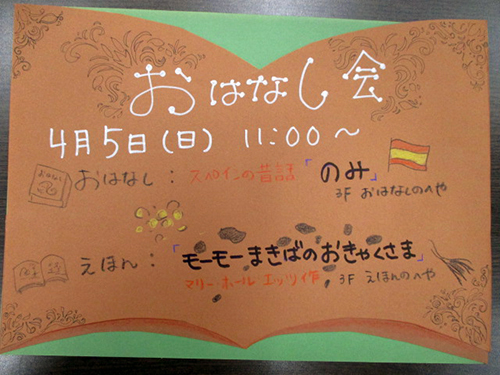 おはなし会
4月5日(日) 11:00~
おはなし: スペインの昔話「のみ」
3F おはなしのへや
えほん:「モーモーまきばのおきゃくさま」
マリー・ホール・エッツ作 3F えほんのへや